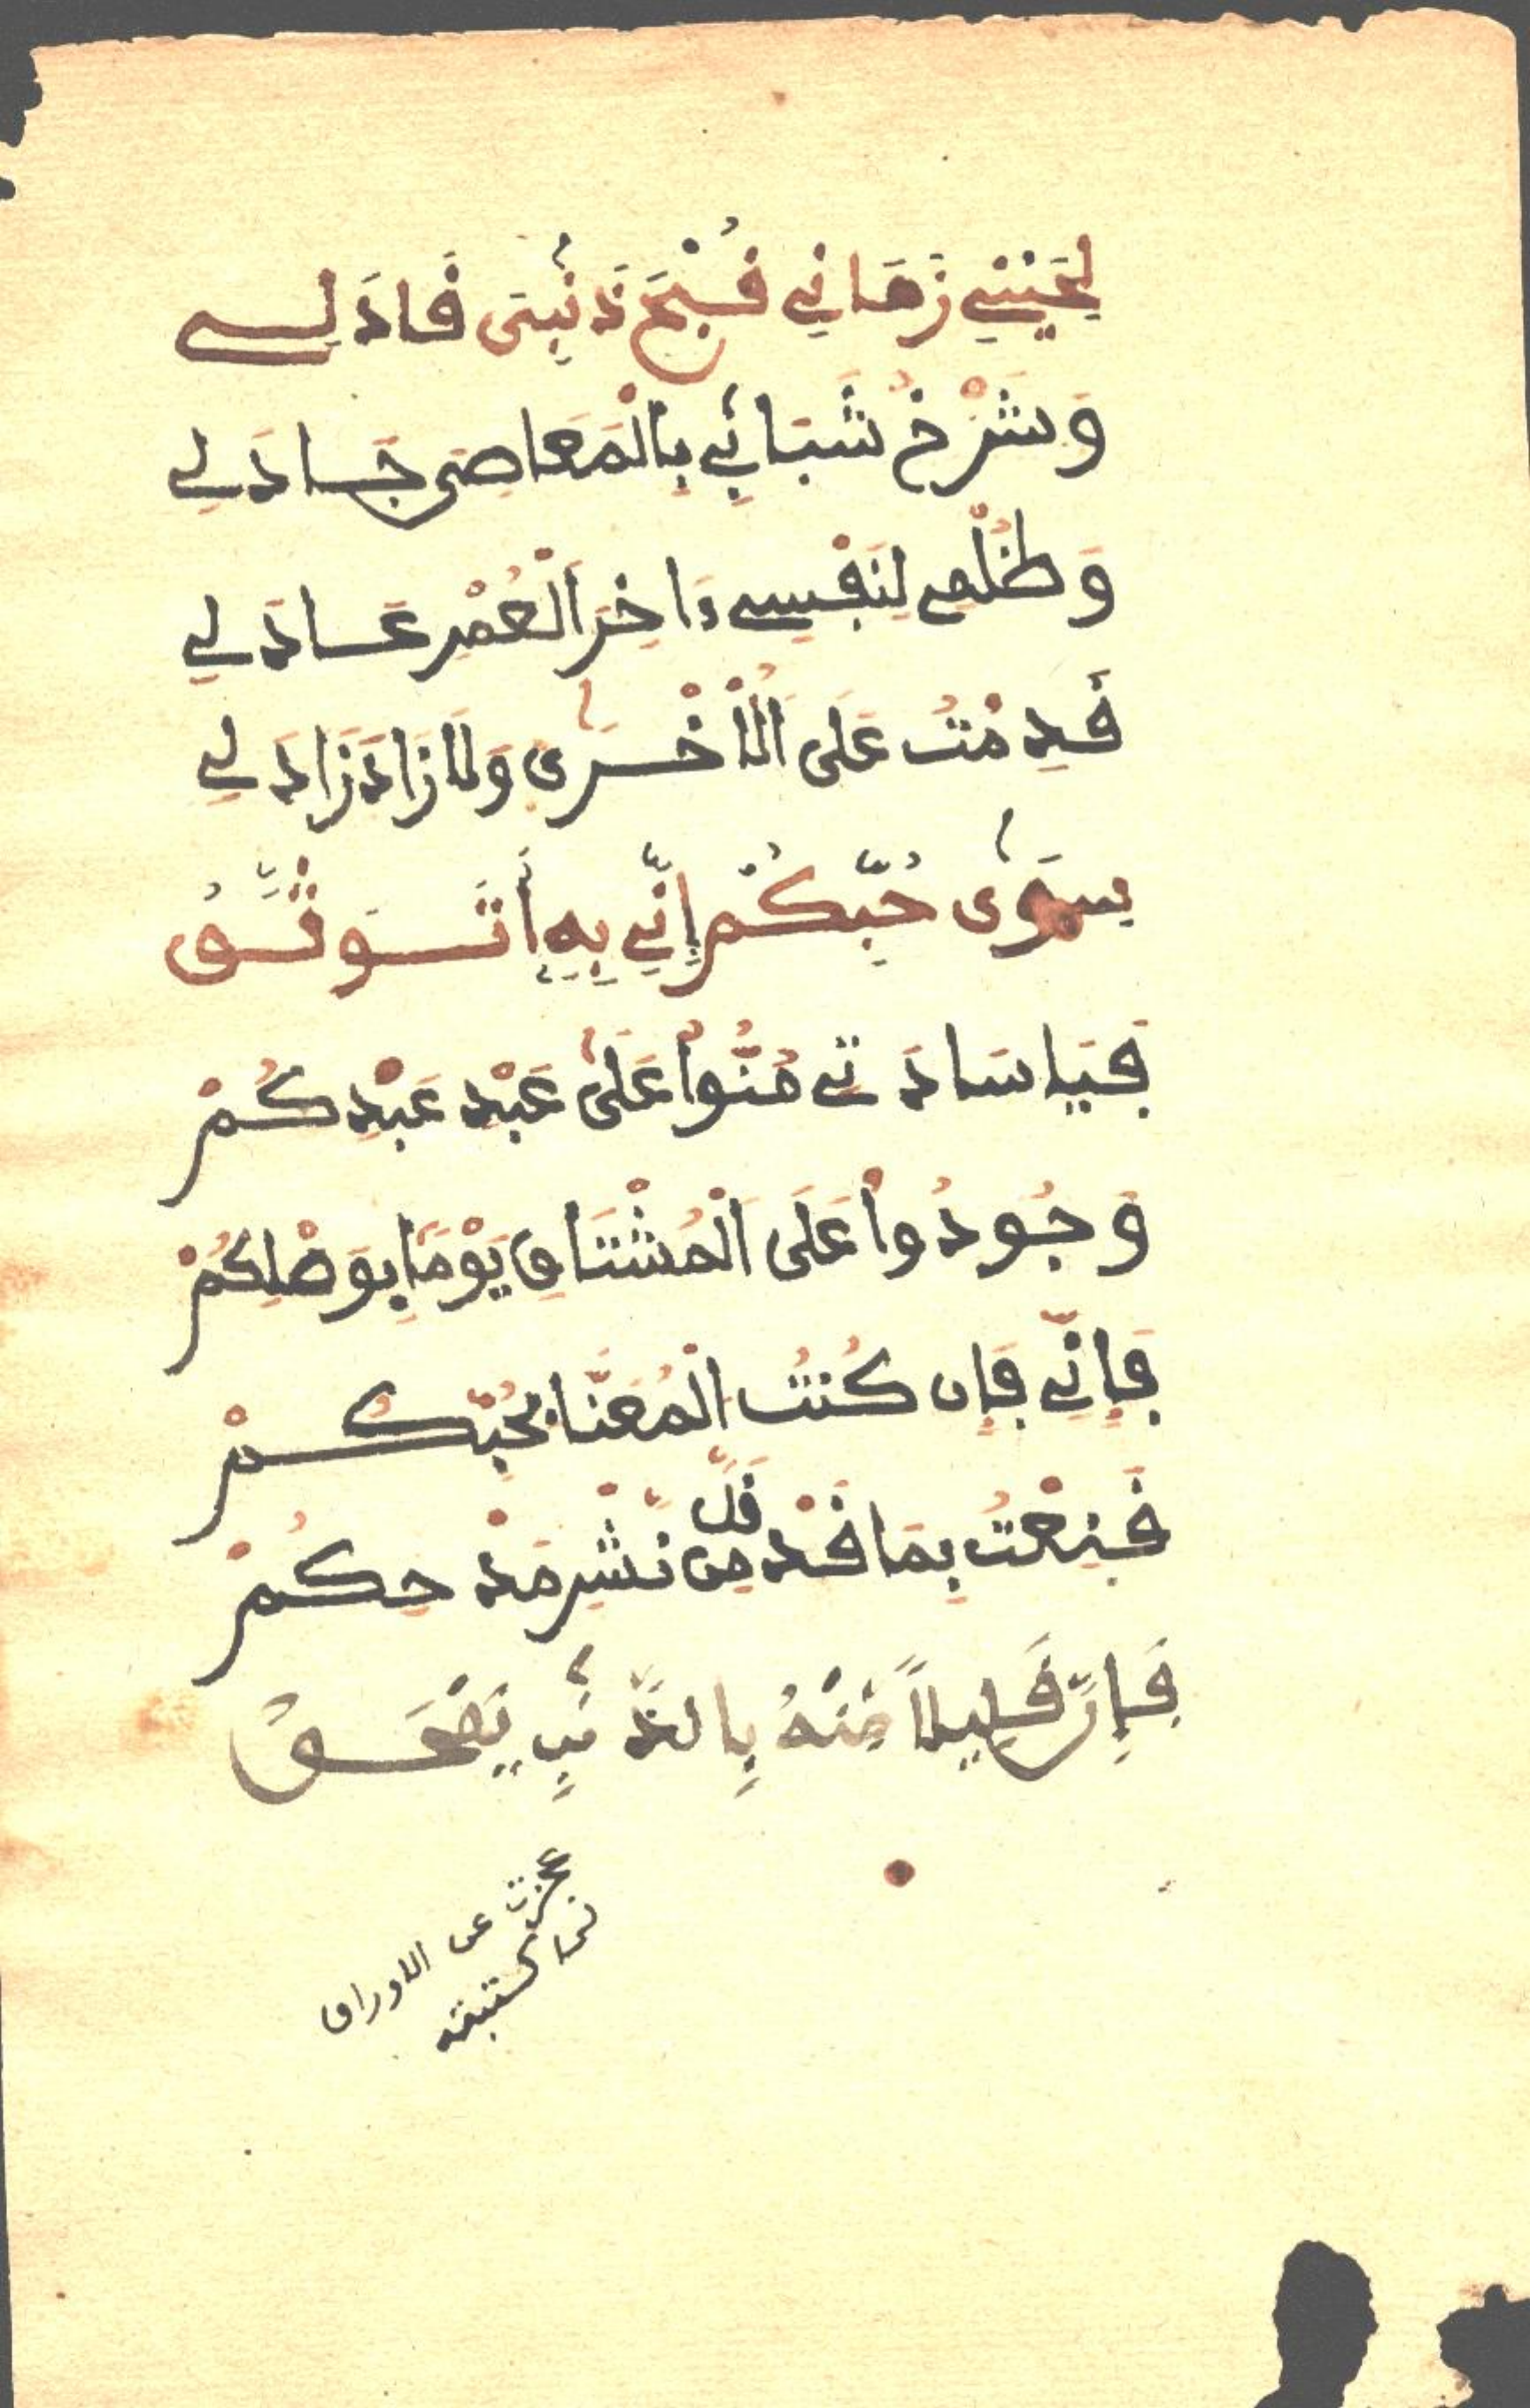 لِحَيْنِي زَمَانِي قُبْحَ ذَنْبِى قَادَ لِي
وَشَرْخُ شَبَابِي بِالْمَعَاصِى جَادَ لِي
وَظُلْمِي لِنَفْسِي ءَاخِرَ الْعُمْرِ عَادَ لِي
قَدِمْتُ عَلَى الْأُخْرَى وَلَا زَادَ زَادَ لِي
سِوَى حُبِّكُمْ إِنِّي بِهِ أَتَوَثَّقُ
فَيَا سَادَتِي مُنُّوا عَلَى عَبْدِ عَبْدِكُمْ
وَجُودُوا عَلَى الْمُشْتَاقِ يَوْمًا بِوَصْلِكُمْ
فَإِنِّي فَإِن كُنتُ الْمُعَنَّا بِحُبِّكُمْ
قَنِعْتُ بِمَا قَدْ قَلَّ مِن نَّشْرِ مَدْحِكُمْ
فَإِنَّ قَلِيلاً مِّنْهُ بِالذَّنبِ يَمْحَقُ
عجزت عن الاوراق